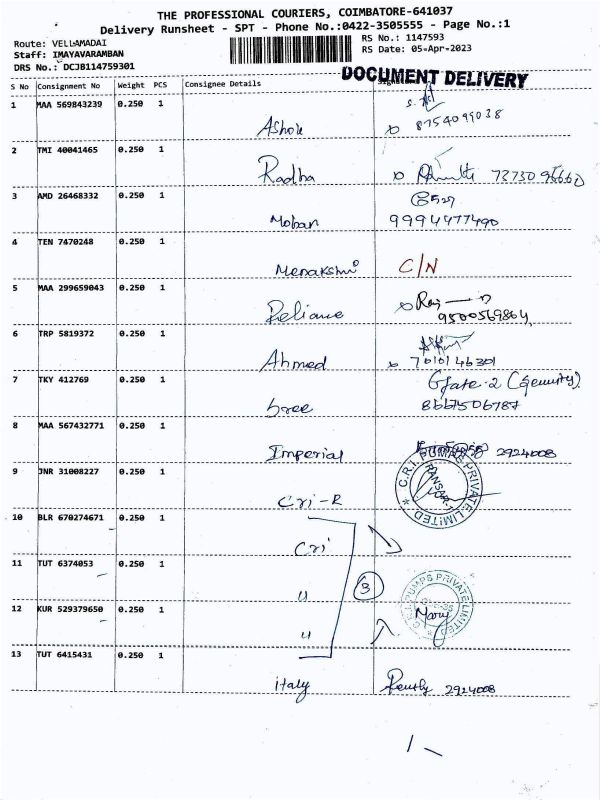 THE PROFESSIONAL COURIERS, COIMBATORE-641037
Delivery Runsheet - SPT - Phone No.:0422-3505555 - Page No.:1
Route: VELLAMADAI
RS No.: 1147593
Staff: IMAYAVARAMBAN
RS Date: 05-Apr-2023
DRS No.: DCJB114759301
DOCUMENT DELIVERY
S No Consignment No Weight PCS Consignee Details
1 MAA 569843239 0.250 1
Ashok 8754099038
2 TMI 40041465 0.250 1
Radha
3 AMD 26468332 0.250 1
Mohan 9994477490
4 TEN 7470248 0.250 1
Menakshi C/N
5 MAA 299659043 0.250 1
Reliance 9500569864
6 TRP 5819372 0.250 1
Ahmed 7010146301
7 TKY 412769 0.250 1
Sree 8667506787
8 MAA 567432771 0.250 1
Imperial 2924008
9 JNR 31008227 0.250 1
Cri-R
C.R.I. PUMPS PRIVATE LIMITED
10 BLR 670274671 0.250 1
Cri
11 TUT 6374053 0.250 1
u
3
C.R.I. PUMPS PRIVATE LIMITED
12 KUR 529379650 0.250 1
u Mary
13 TUT 6415431 0.250 1
italy 2924008